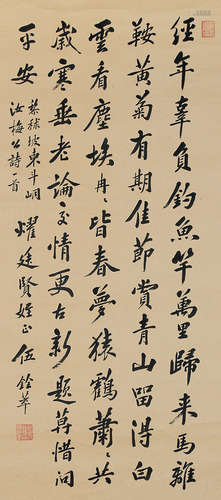 經年辜負釣魚竿萬里歸來馬離
鞍黃菊有期佳節賞青山留得白
雲看塵埃冉〻皆春夢猿鶴蕭〻共
歲寒垂老論交情更古新題莫惜問
平安
黎秫坡柬斗峒
汝梅公詩一首
耀廷賢姪正 伍銓萃